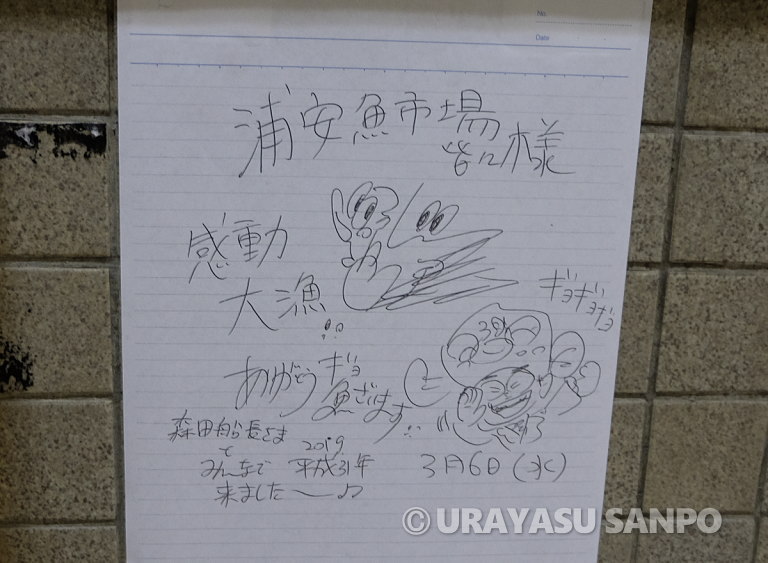 No.
Date
浦安魚市場
皆に様
感動
大漁!!
ギョギョギョ
ありがとうギョ
魚ざいます!!
森田船長さま
と 2019
みんなで 平成31年 3月6日(水)
来ました〜♪
© URAYASU SANPO